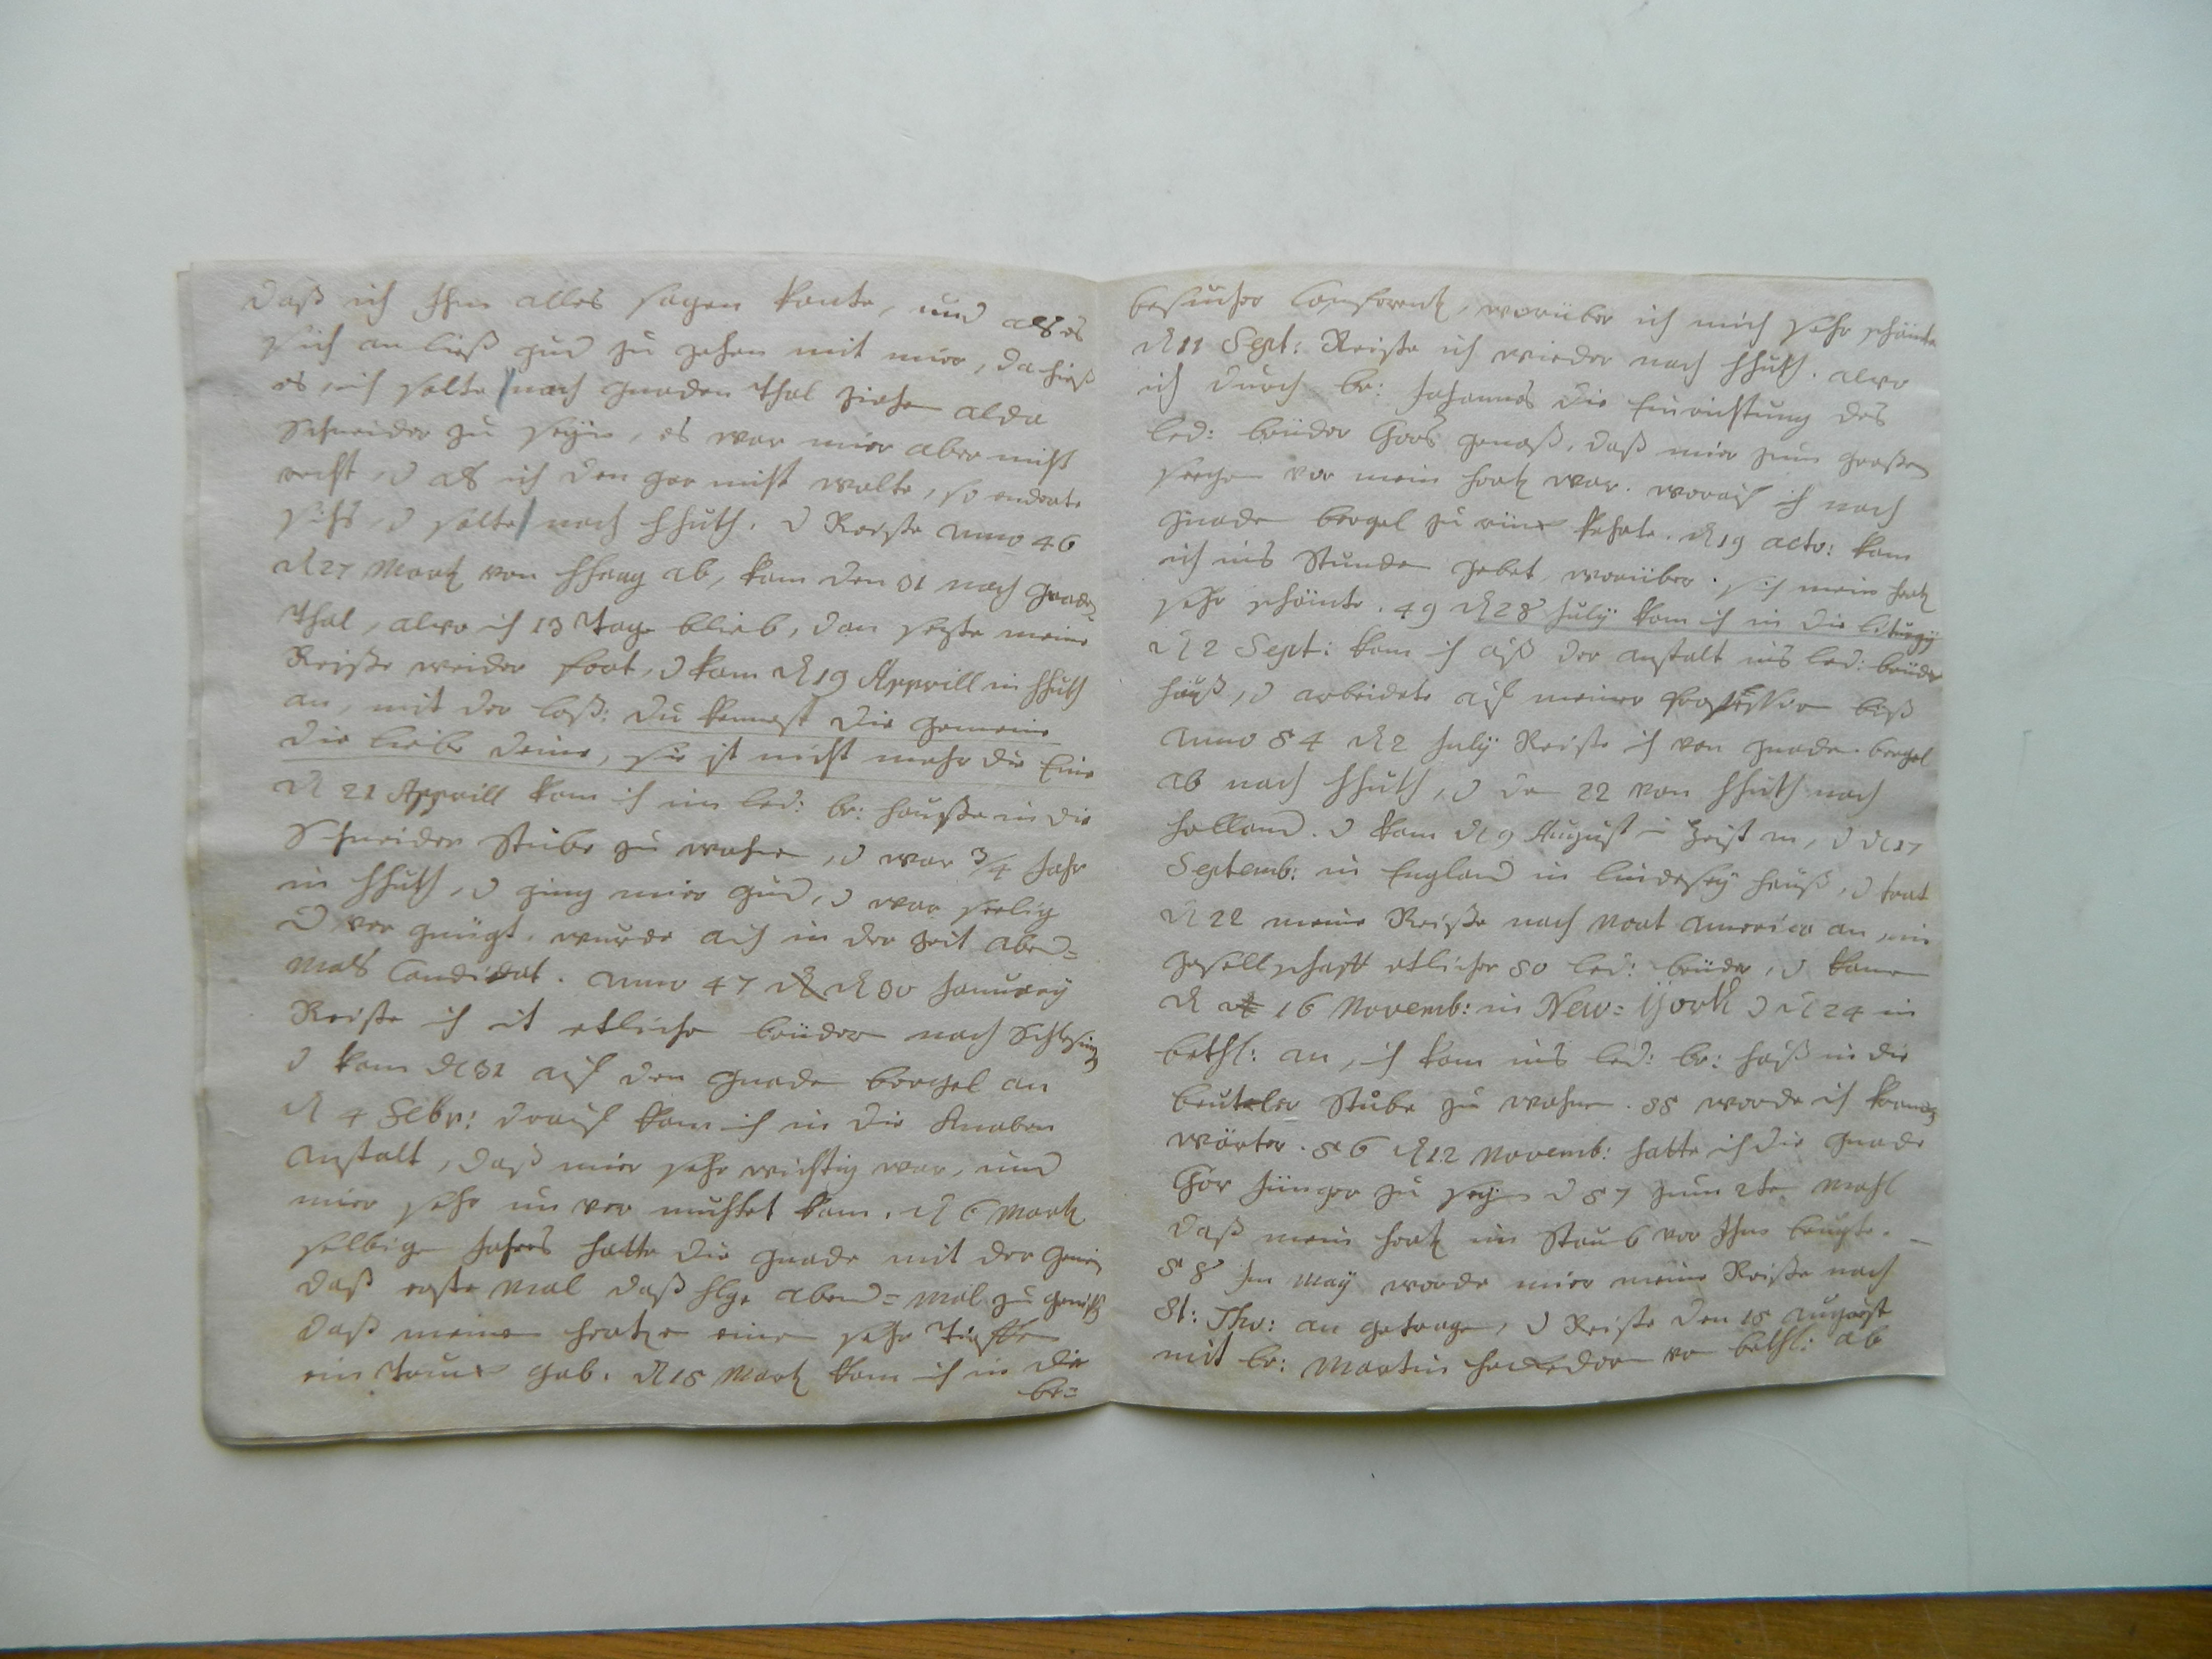 daß ich Ihm alles sagen konte, und als es
sich an ließ gud zu gehen mit mier, da hieß
es, ich solte nach gnaden Thal ziehen alda
Schneider zu seyn, es war mier aber nicht
recht, d als ich den gar nicht wolte, so enderte
sichs, d solte nach Hhuth. d Reiste Anno 46
d 27 Mertz von Hhaag ab, kam den 31 nach gnaden
Thal, alwo ich 13 Tage blieb, dan sezte meine
Reiße weider fort, d kam d 19 Apprill in Hhuth
an, mit der loß: du kennest die gemeine
die liebe deine, sie ist nicht mehr die Eine
d 21 Apprill kam ich im led: br: hauße in die
Schneider Stube zu wohnen, d war 3/4 Jahr
in Hhuth, d ging mier gud, d war seelig
d ver gnügt. wurde auch in der Zeit abend=
mals Candidat. Anno 47 d 30 January
Reiste ich it etliche brüdern nach Schlesing
d kam d 31 auf den gnaden bergel an
d 4 Febr: drauf kam ich in die Knaben
anstalt, daß mier sehr wichtig war, und
mier sehr un ver muhtet kam. d 6 Mertz
selbigen Jahres hatte die gnade mit der gemein
daß erste Mal daß hlge abend=mal zu genißen
daß meinen hertzen einen sehr Tieffen
ein Truck gab. d 15 Mertz kam ich in die
be=
besucher Conferentz, worüber ich mich sehr schämte
d 11 Sept: Reiste ich wieder nach Hhuth. alwo
ich durch br: Johannes die Einrichtung des
led: brüder Chors genoß, daß mier zum großen
seegen vor mein hertz war. worauf ich nach
gnaden bergel zu rück kehrte. d 19 acto: kam
ich ins Stunden gebet, worüber sich mein hertz
sehr schämte. 49 d 28 July kam ich in die liturgy
d 2 Sept: kam ich auß der anstalt ins led: brüder
hauß, d arbeidete auf meiner profession biß
Anno 54 d 2 July Reiste ich von gnaden bergel
ab nach Hhuth, d den 22 von Hhuth nach
holland. d kam d 9 August in Zeist an, d d 17
Septemb: in England in lindesey hauß, d trat
d 22 meine Reiße nach Nort America an, in
gesellschafft etlicher 50 led: brüder, d kamen
d 16 Novemb: in New=Yjork d d 24 in
bethl: an, ich kam ins led: br: hauß in die
beutler Stube zu wohnen. 55 worde ich krancken
wärter. 56 d 12 Novemb: hatte ich die gnade
Chor Jünger zu seyn d 57 zum 2ten Mahl
daß mein hertz im Staub vor Ihm beugte. —
58 Im May worde mier meine Reiße nach
St: Tho: an getragen, d Reiste den 15 August
mit br: Martin von bethl: ab